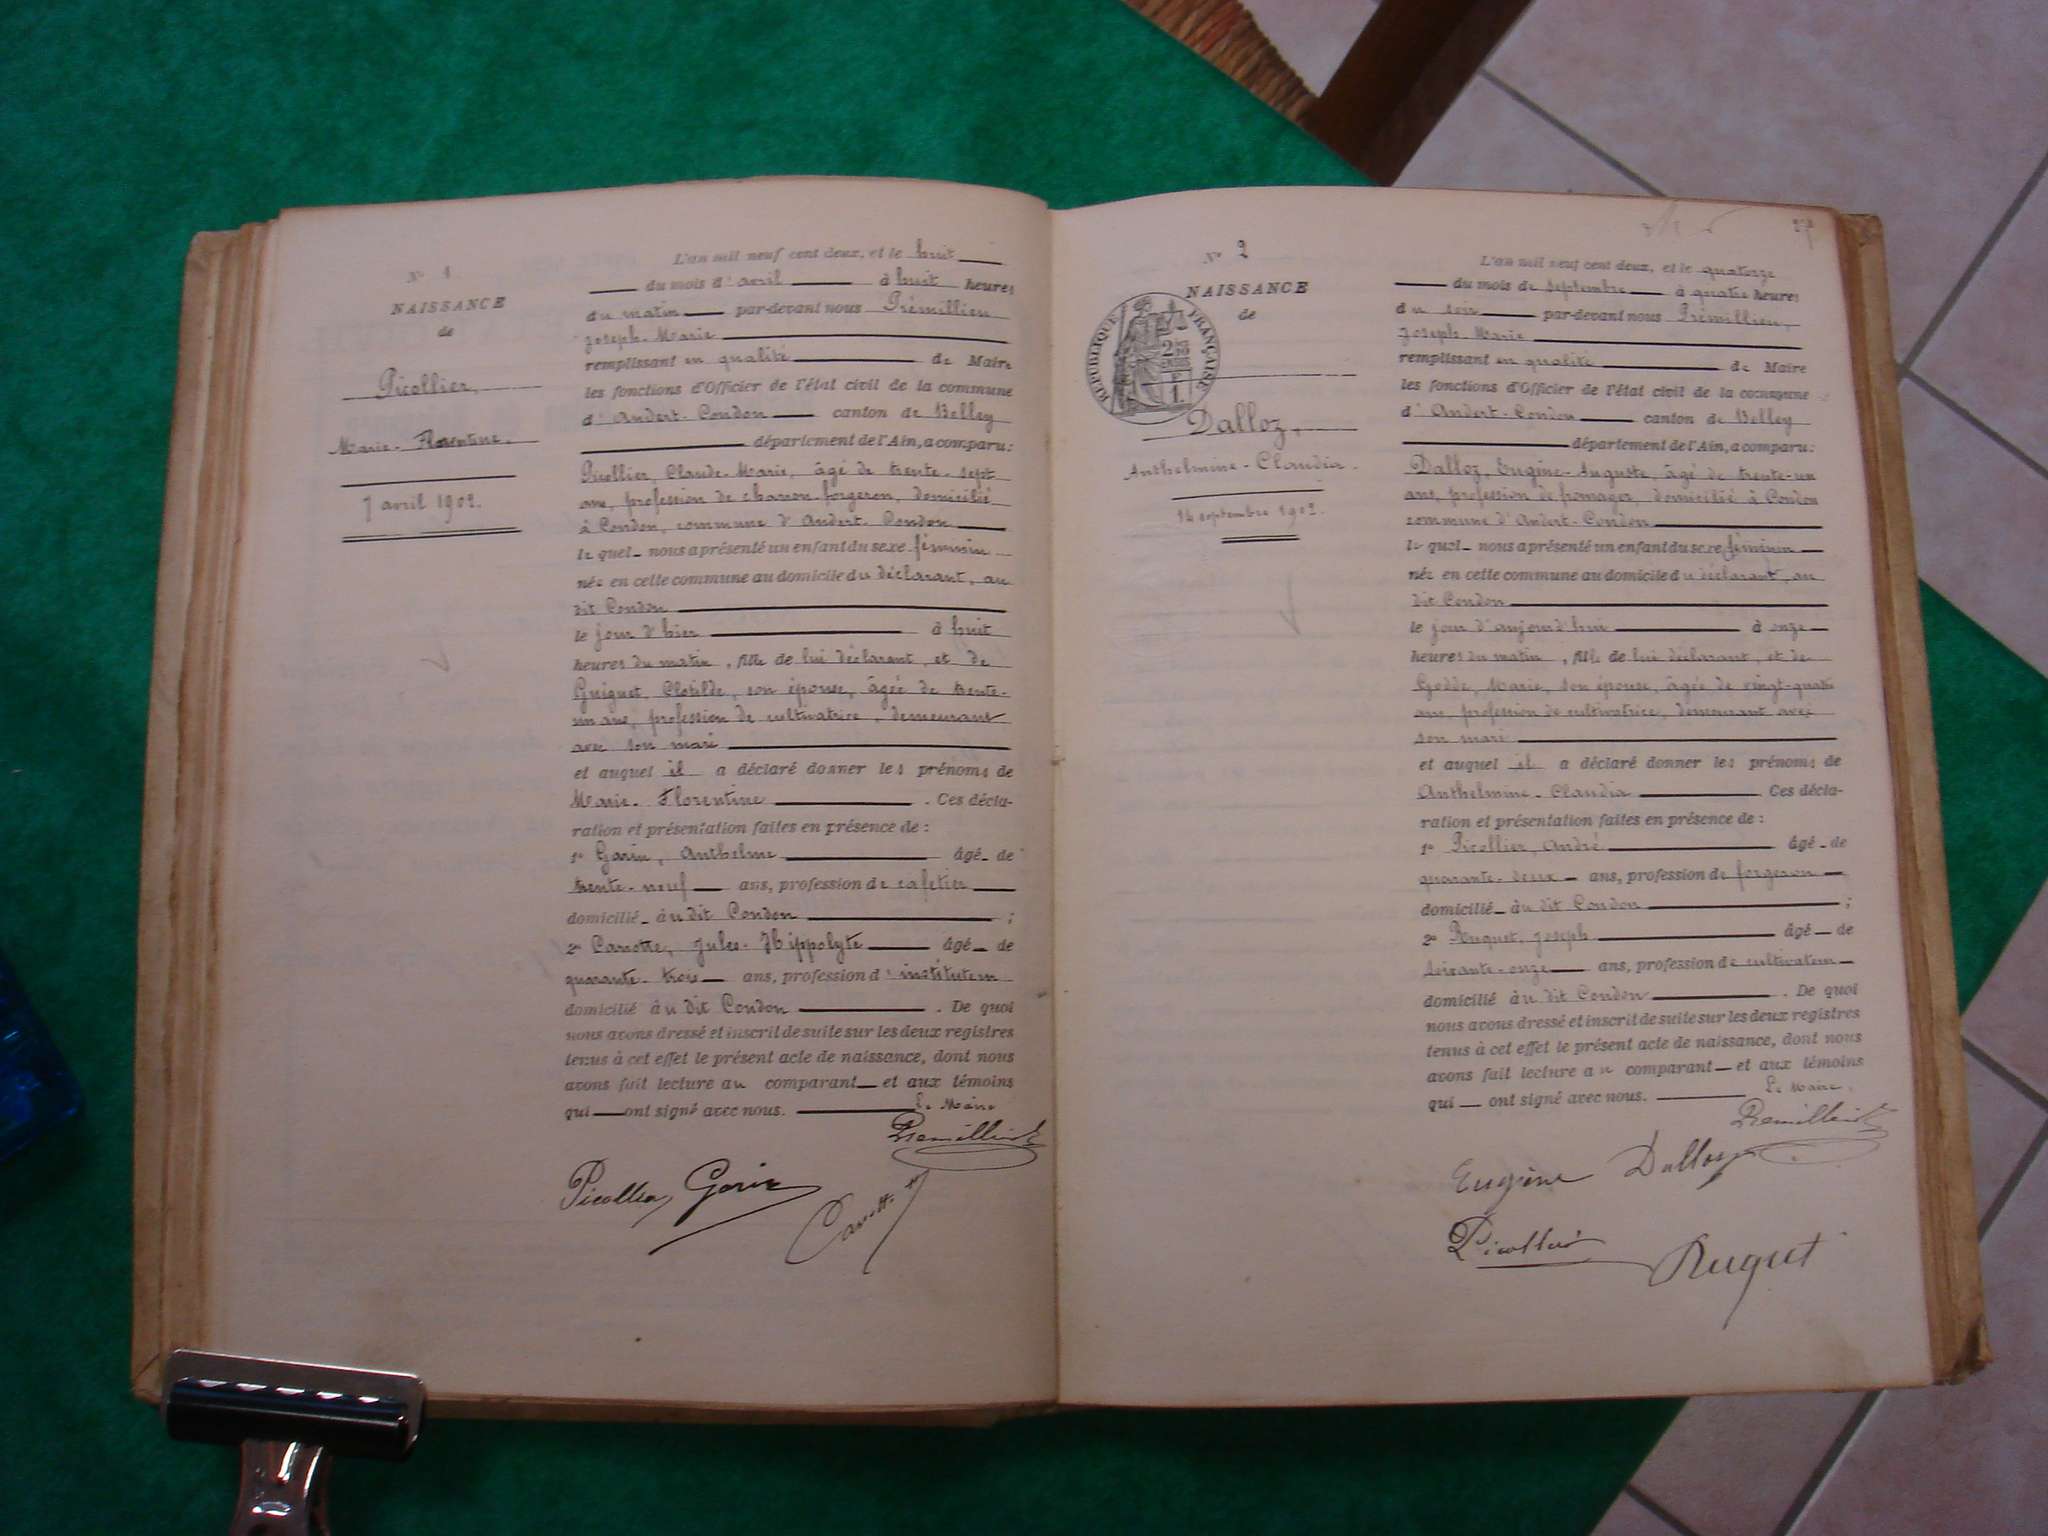 N° 1
NAISSANCE
de
Picollier,
Marie-Florentine.
7 avril 1902.
L'an mil neuf cent deux, et le huit
du mois d'avril à huit heures
du matin par-devant nous Prémillieu
Joseph-Marie
remplissant en qualité de Maire
les fonctions d'Officier de l'état civil de la commune
d'Andert-Condon canton de Belley
département de l'Ain, a comparu:
Picollier, Claude-Marie, âgé de trente-sept
ans, profession de charron-forgeron, domicilié
à Condon, commune d'Andert-Condon
lequel nous a présenté un enfant du sexe féminin
née en cette commune au domicile du déclarant, au
dit Condon
le jour d'hier à huit
heures du matin, fille de lui déclarant, et de
Guiguet, Clotilde, son épouse, âgée de trente-
un ans, profession de cultivatrice, demeurant
avec son mari
et auquel il a déclaré donner les prénoms de
Marie-Florentine. Ces décla-
ration et présentation faites en présence de :
1° Garin, Anthelme âgé de
trente-neuf ans, profession de cafetier
domicilié au dit Condon ;
2° Carrotte, Jules-Hippolyte âgé de
quarante-trois ans, profession d'instituteur
domicilié au dit Condon. De quoi
nous avons dressé et inscrit de suite sur les deux registres
tenus à cet effet le présent acte de naissance, dont nous
avons fait lecture au comparant et aux témoins
qui ont signé avec nous. Le Maire
Premillieu
Picollier Garin
N° 2
NAISSANCE
de
RÉPUBLIQUE FRANÇAISE
Dalloz,
Anthelmine-Claudia.
14 septembre 1902.
L'an mil neuf cent deux, et le quatorze
du mois de septembre à quatre heures
du soir par-devant nous Prémillieu,
Joseph-Marie
remplissant en qualité de Maire
les fonctions d'Officier de l'état civil de la commune
d'Andert-Condon canton de Belley
département de l'Ain, a comparu:
Dalloz, Eugène-Auguste, âgé de trente-un
ans, profession de fromager, domicilié à Condon
commune d'Andert-Condon
lequel nous a présenté un enfant du sexe féminin
née en cette commune au domicile du déclarant, au
dit Condon
le jour d'aujourd'hui à onze
heures du matin, fille de lui déclarant, et de
Godde, Marie, son épouse, âgée de vingt-quatre
ans, profession de cultivatrice, demeurant avec
son mari
et auquel il a déclaré donner les prénoms de
Anthelmine-Claudia Ces décla-
ration et présentation faites en présence de :
1° Picollier, André âgé de
quarante-deux ans, profession de forgeron
domicilié au dit Condon ;
2° Ruguet, Joseph âgé de
soixante-onze ans, profession de cultivateur
domicilié au dit Condon. De quoi
nous avons dressé et inscrit de suite sur les deux registres
tenus à cet effet le présent acte de naissance, dont nous
avons fait lecture au comparant et aux témoins
qui ont signé avec nous. Le Maire,
Premillieu
Eugène Dalloz
Picollier Ruguet